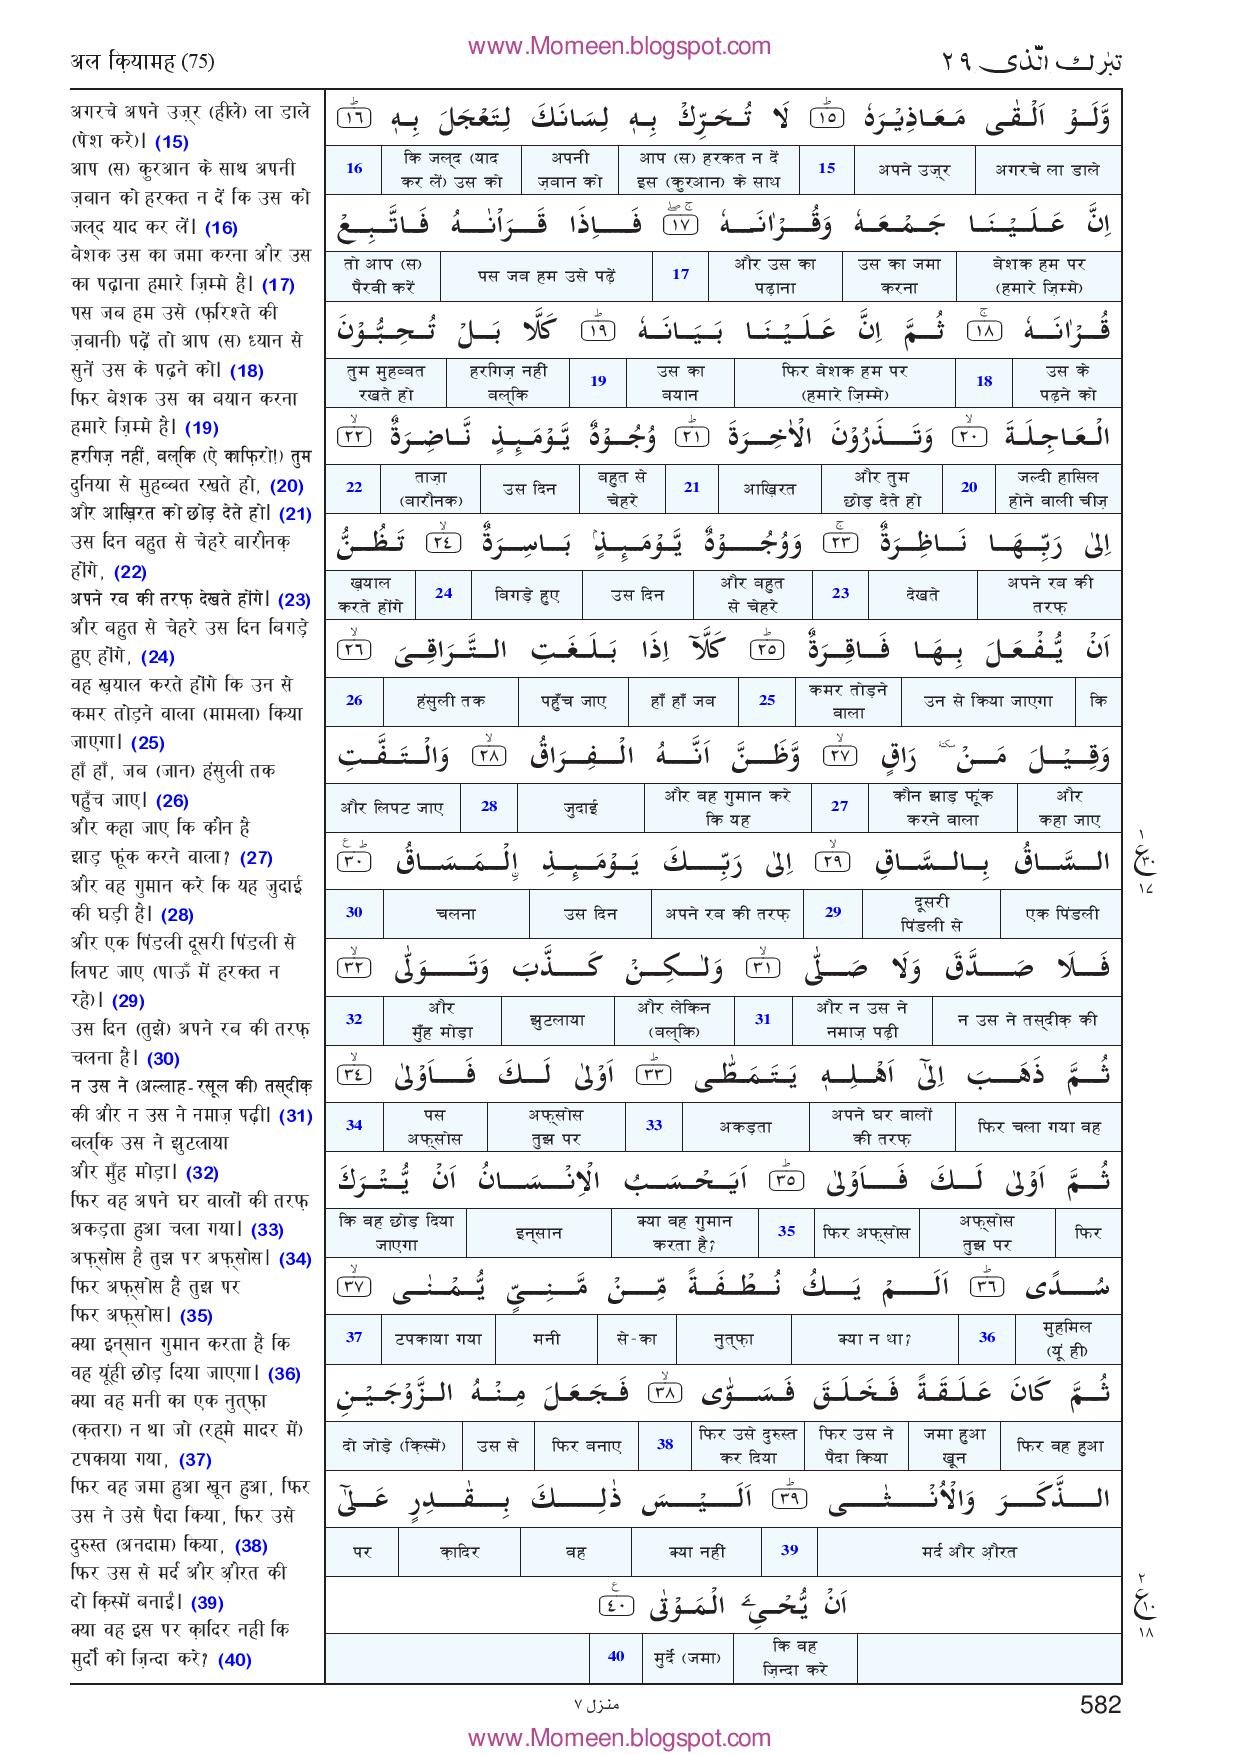 www.Momeen.blogspot.com
अल क़ियामह (75)
تبٰرك الّذى ٢٩
अगरचे अपने उज़्र (हीले) ला डाले
(पेश करे)। (15)
आप (स) कुरआन के साथ अपनी
ज़बान को हरकत न दें कि उस को
जल्द याद कर लें। (16)
बेशक उस का जमा करना और उस
का पढ़ाना हमारे ज़िम्मे है। (17)
पस जब हम उसे (फ़रिश्ते की
ज़बानी) पढ़ें तो आप (स) ध्यान से
सुनें उस के पढ़ने को। (18)
फिर बेशक उस का बयान करना
हमारे ज़िम्मे है। (19)
हरगिज़ नहीं, बल्कि (ऐ काफ़िरो!) तुम
दुनिया से मुहब्बत रखते हो, (20)
और आख़िरत को छोड़ देते हो। (21)
उस दिन बहुत से चेहरे बारौनक़
होंगे, (22)
अपने रब की तरफ़ देखते होंगे। (23)
और बहुत से चेहरे उस दिन बिगड़े
हुए होंगे, (24)
वह ख़याल करते होंगे कि उन से
कमर तोड़ने वाला (मामला) किया
जाएगा। (25)
हाँ हाँ, जब (जान) हंसुली तक
पहुँच जाए। (26)
और कहा जाए कि कौन है
झाड़ फूंक करने वाला? (27)
और वह गुमान करे कि यह जुदाई
की घड़ी है। (28)
और एक पिंडली दूसरी पिंडली से
लिपट जाए (पाऊँ में हरकत न
रहे)। (29)
उस दिन (तुझे) अपने रब की तरफ़
चलना है। (30)
न उस ने (अल्लाह-रसूल की) तस्दीक़
की और न उस ने नमाज़ पढ़ी। (31)
बल्कि उस ने झुटलाया
और मुँह मोड़ा। (32)
फिर वह अपने घर वालों की तरफ़
अकड़ता हुआ चला गया। (33)
अफ़्सोस है तुझ पर अफ़्सोस। (34)
फिर अफ़्सोस है तुझ पर
फिर अफ़्सोस। (35)
क्या इन्सान गुमान करता है कि
वह यूंही छोड़ दिया जाएगा। (36)
क्या वह मनी का एक नुत्फ़ा
(क़तरा) न था जो (रह्मे मादर में)
टपकाया गया, (37)
फिर वह जमा हुआ खून हुआ, फिर
उस ने उसे पैदा किया, फिर उसे
दुरुस्त (अनदाम) किया, (38)
फिर उस से मर्द और औ़रत की
दो क़िस्में बनाईं। (39)
क्या वह इस पर क़ादिर नहीं कि
मुर्दों को ज़िन्दा करे? (40)
وَّلَوْ اَلْقٰى مَعَاذِيْرَهٗ ١٥ لَا تُحَرِّكْ بِهٖ لِسَانَكَ لِتَعْجَلَ بِهٖ ١٦
अगरचे ला डाले अपने उज़्र 15 आप (स) हरकत न दें इस (कुरआन) के साथ अपनी ज़बान को कि जल्द (याद कर लें) उस को 16
اِنَّ عَلَيْنَا جَمْعَهٗ وَقُرْاٰنَهٗ ١٧ فَاِذَا قَرَاْنٰهُ فَاتَّبِعْ
बेशक हम पर (हमारे ज़िम्मे) उस का जमा करना और उस का पढ़ाना 17 पस जब हम उसे पढ़ें तो आप (स) पैरवी करें
قُرْاٰنَهٗ ١٨ ثُمَّ اِنَّ عَلَيْنَا بَيَانَهٗ ١٩ كَلَّا بَلْ تُحِبُّوْنَ
उस के पढ़ने को 18 फिर बेशक हम पर (हमारे ज़िम्मे) उस का बयान 19 हरगिज़ नहीं बल्कि तुम मुहब्बत रखते हो
الْعَاجِلَةَ ٢٠ وَتَذَرُوْنَ الْاٰخِرَةَ ٢١ وُجُوْهٌ يَّوْمَئِذٍ نَّاضِرَةٌ ٢٢
जल्दी हासिल होने वाली चीज़ 20 और तुम छोड़ देते हो आख़िरत 21 बहुत से चेहरे उस दिन ताज़ा (बारौनक़) 22
اِلٰى رَبِّهَا نَاظِرَةٌ ٢٣ وَوُجُوْهٌ يَّوْمَئِذٍۢ بَاسِرَةٌ ٢٤ تَظُنُّ
अपने रब की तरफ़ देखते 23 और बहुत से चेहरे उस दिन बिगड़े हुए 24 ख़याल करते होंगे
اَنْ يُّفْعَلَ بِهَا فَاقِرَةٌ ٢٥ كَلَّآ اِذَا بَلَغَتِ التَّرَاقِىَ ٢٦
कि उन से किया जाएगा कमर तोड़ने वाला 25 हाँ हाँ जब पहुँच जाए हंसुली तक 26
وَقِيْلَ مَنْ ۜ رَاقٍ ٢٧ وَّظَنَّ اَنَّهُ الْفِرَاقُ ٢٨ وَالْتَفَّتِ
और कहा जाए कौन झाड़ फूंक करने वाला 27 और वह गुमान करे कि यह जुदाई 28 और लिपट जाए
السَّاقُ بِالسَّاقِ ٢٩ اِلٰى رَبِّكَ يَوْمَئِذِ ۨالْمَسَاقُ ٣٠
١ ع ٣٠ ١٧
एक पिंडली दूसरी पिंडली से 29 अपने रब की तरफ़ उस दिन चलना 30
فَلَا صَدَّقَ وَلَا صَلّٰى ٣١ وَلٰكِنْ كَذَّبَ وَتَوَلّٰى ٣٢
न उस ने तस्दीक़ की और न उस ने नमाज़ पढ़ी 31 और लेकिन (बल्कि) झुटलाया और मुँह मोड़ा 32
ثُمَّ ذَهَبَ اِلٰٓى اَهْلِهٖ يَتَمَطّٰى ٣٣ اَوْلٰى لَكَ فَاَوْلٰى ٣٤
फिर चला गया वह अपने घर वालों की तरफ़ अकड़ता 33 अफ़्सोस तुझ पर पस अफ़्सोस 34
ثُمَّ اَوْلٰى لَكَ فَاَوْلٰى ٣٥ اَيَحْسَبُ الْاِنْسَانُ اَنْ يُّتْرَكَ
फिर अफ़्सोस तुझ पर फिर अफ़्सोस 35 क्या वह गुमान करता है? इन्सान कि वह छोड़ दिया जाएगा
سُدًى ٣٦ اَلَمْ يَكُ نُطْفَةً مِّنْ مَّنِىٍّ يُّمْنٰى ٣٧
मुहमिल (यूं ही) 36 क्या न था? नुत्फ़ा से-का मनी टपकाया गया 37
ثُمَّ كَانَ عَلَقَةً فَخَلَقَ فَسَوّٰى ٣٨ فَجَعَلَ مِنْهُ الزَّوْجَيْنِ
फिर वह हुआ जमा हुआ खून फिर उस ने पैदा किया फिर उसे दुरुस्त कर दिया 38 फिर बनाए उस से दो जोड़े (क़िस्में)
الذَّكَرَ وَالْاُنْثٰى ٣٩ اَلَيْسَ ذٰلِكَ بِقٰدِرٍ عَلٰٓى
मर्द और औ़रत 39 क्या नहीं वह क़ादिर पर
اَنْ يُّحْيِۦَ الْمَوْتٰى ٤٠
٢ ع ١٠ ١٨
कि वह ज़िन्दा करे मुर्दे (जमा) 40
منزل ٧
582
www.Momeen.blogspot.com